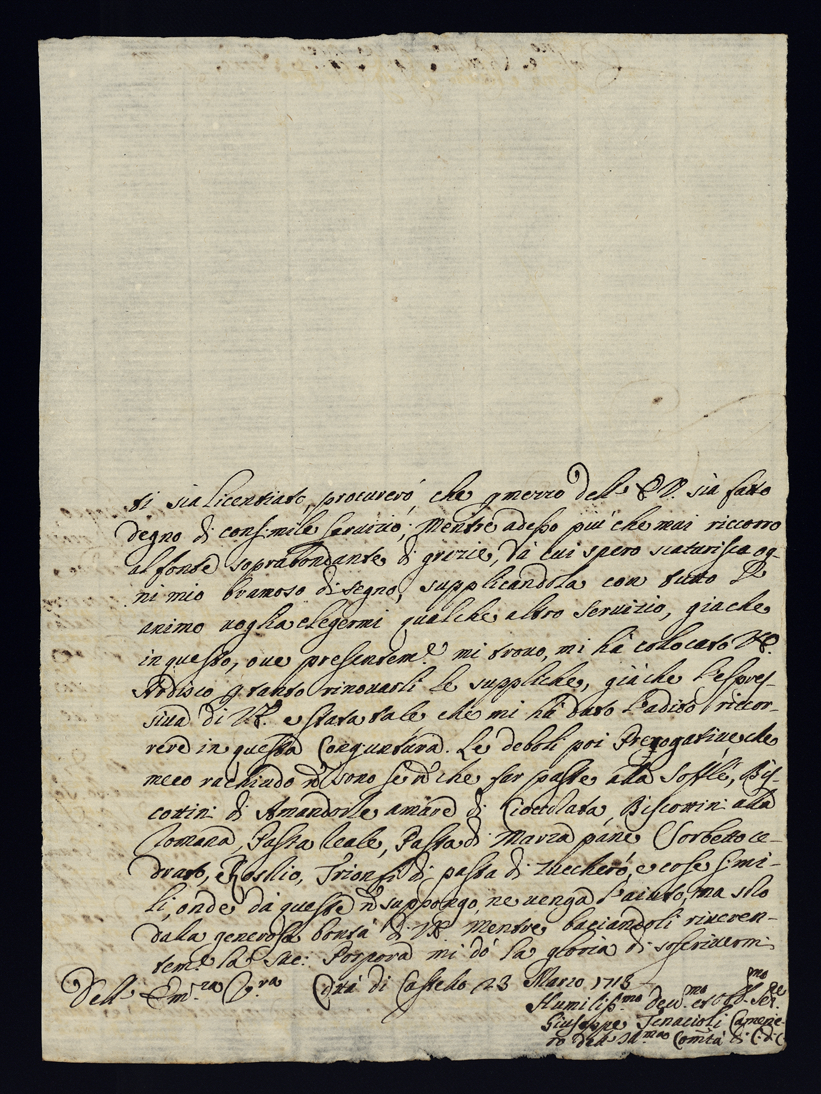 ti sia licentiato, procurerò che p mezzo dell' E.V. sia fatto
degno di consimile servizio; Mentre adesso più che mai ricorro
al fonte soprabondante di grazie, da cui spero scaturisca og-
ni mio bramoso disegno, supplicandola con tutto l'
animo voglia elegermi qualche altro Servizio, giache
in questo, ove presentem.e mi trovo, mi hà collocato V.E.
Ardisco p tanto rinovarli le suppliche, già che l'espres-
siva di V.E. è stata tale che mi hà dato l'adito ricor-
rere in questa Congiuntura. Le deboli poi Prerogative che
meco rachiudo nō sono se nō che far paste alla Sofflè, Bis-
cottini di Amandorle amare di Cioccolata, Biscottini alla
Romana, Pasta Reale, Pasta di Marza pane Sorbetto ce-
drato, Rosolio, Trionfi di pasta di zucchero, e cose simi-
li, onde da queste nō suppongo ne venga l'aiuto, ma solo
dalla generosa bontà di V.E. Mentre baciandoli riveren-
tem.e la Sac: Porpora mi dò la gloria di soscrivermi
Dell' Em.za V.ra Città di Castello 23 Marzo 1713
Humiliss.mo Dev.mo et Obb.mo Ser.e
Giuseppe Tenacioli Camerie-
ro dell' Ill.ma Com̄tà di C: di C